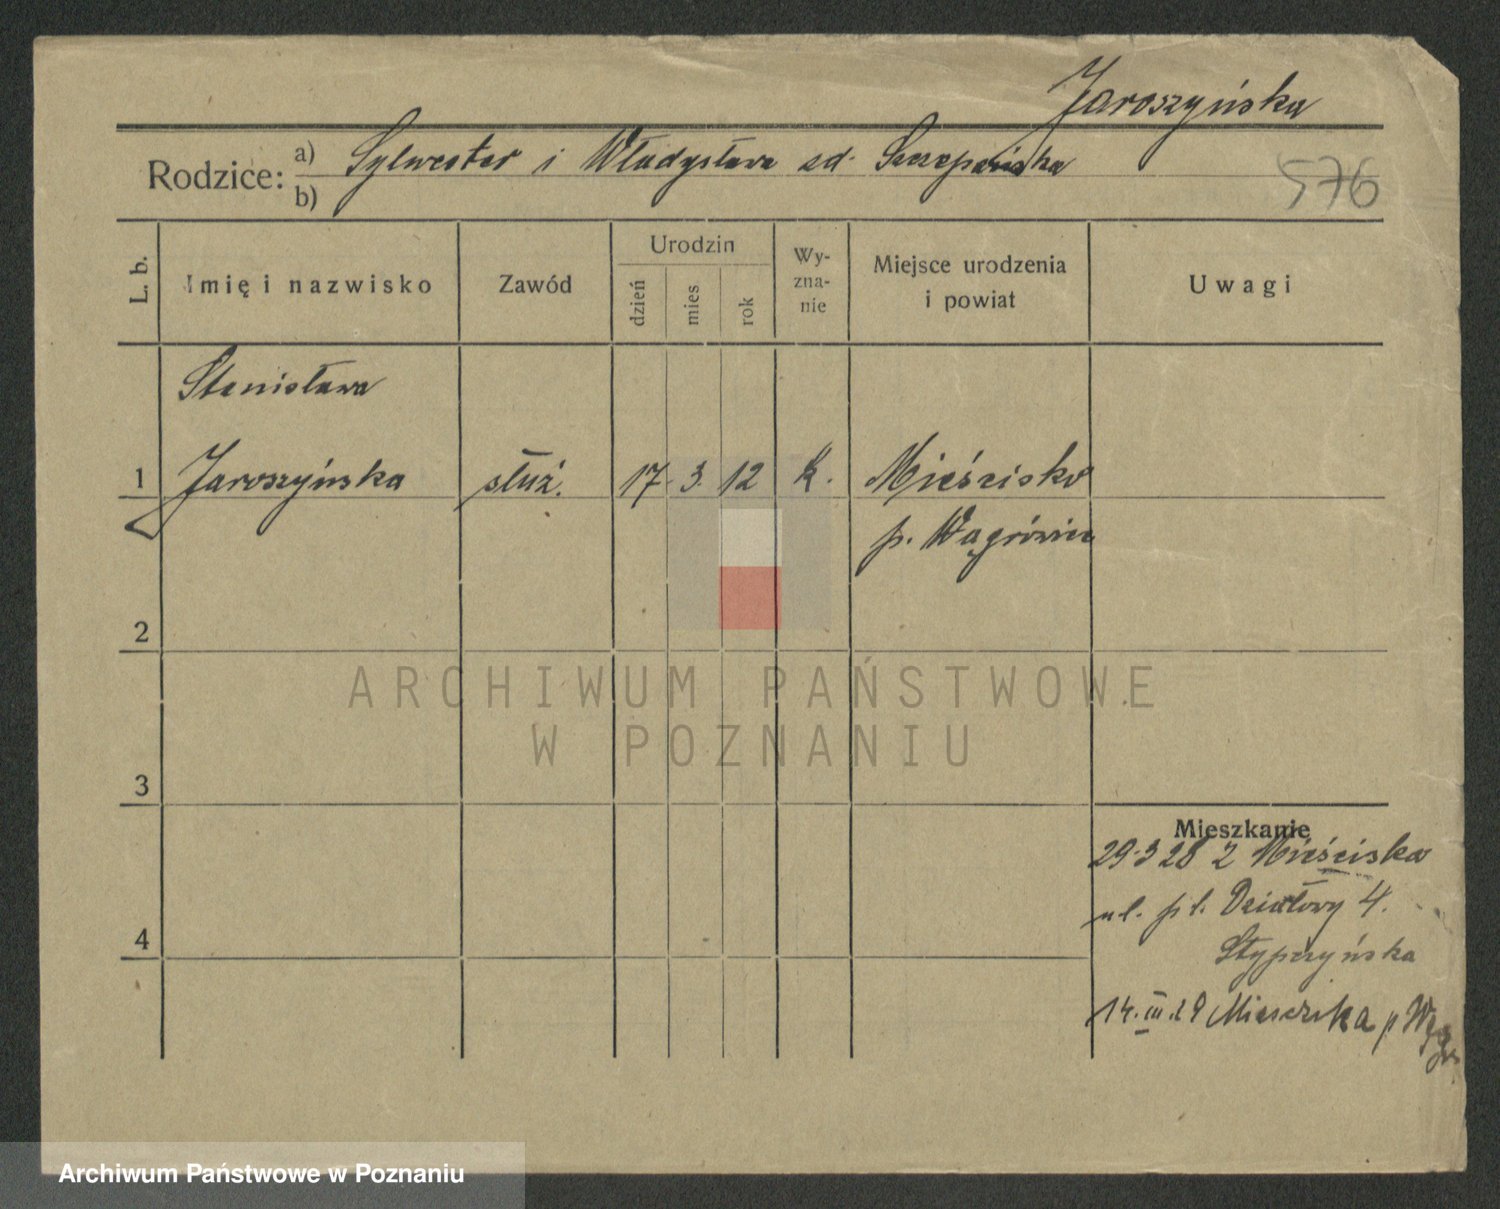 Jaroszyńska
Rodzice: a) Sylwester i Władysława zd. Szczepańska
b)
576
L. b.
Imię i nazwisko
Zawód
Urodzin
dzień
mies
rok
Wy-
zna-
nie
Miejsce urodzenia
i powiat
Uwagi
Stanisława
1 Jaroszyńska służ. 17. 3. 12 k. Mieścisko
p. Wągrówiec
2
ARCHIWUM PAŃSTWOWE
W POZNANIU
3
Mieszkanie
29.3 28 z Mieściska
ul. pl. Działowy 4.
4
Stypczyńska
14.III.29 p Wągr
Archiwum Państwowe w Poznaniu